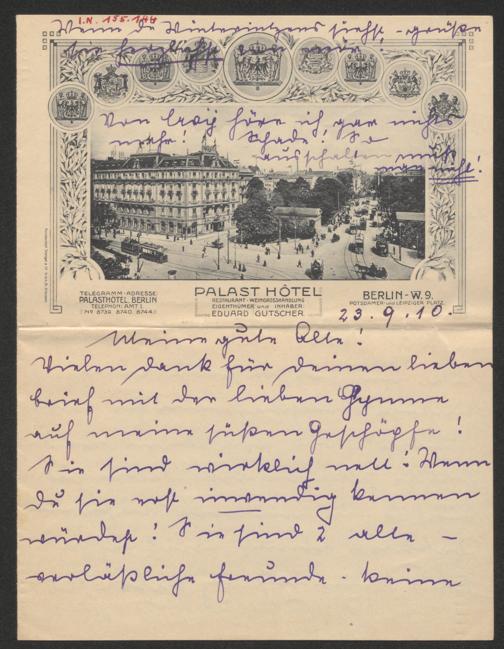 I.N. 155.144
Wenn du Winternitzens siehst - grüße
sie herzlichst von mir!
Von höre ich gar nichts
mehr! Schade! So
ausschalten muß
man nicht!
TELEGRAMM-ADRESSE:
PALASTHOTEL BERLIN
TELEPHON: AMT I.
(No 8739. 8740. 8744.)
PALAST HÔTEL
RESTAURANT · WEINGROSSHANDLUNG
EIGENTHÜMER UND INHABER:
EDUARD GUTSCHER.
BERLIN-W. 9.
POTSDAMER UND LEIPZIGER PLATZ.
23.9.10.
Meine gute Alte!
Vielen dank für deinen lieben
brief mit der lieben Hymne
auf meine süßen Geschöpfe!
Sie sind wirklich nett! Wenn
du sie erst inwendig kennen
würdest! Sie sind 2 alte -
verläßliche freunde - keine